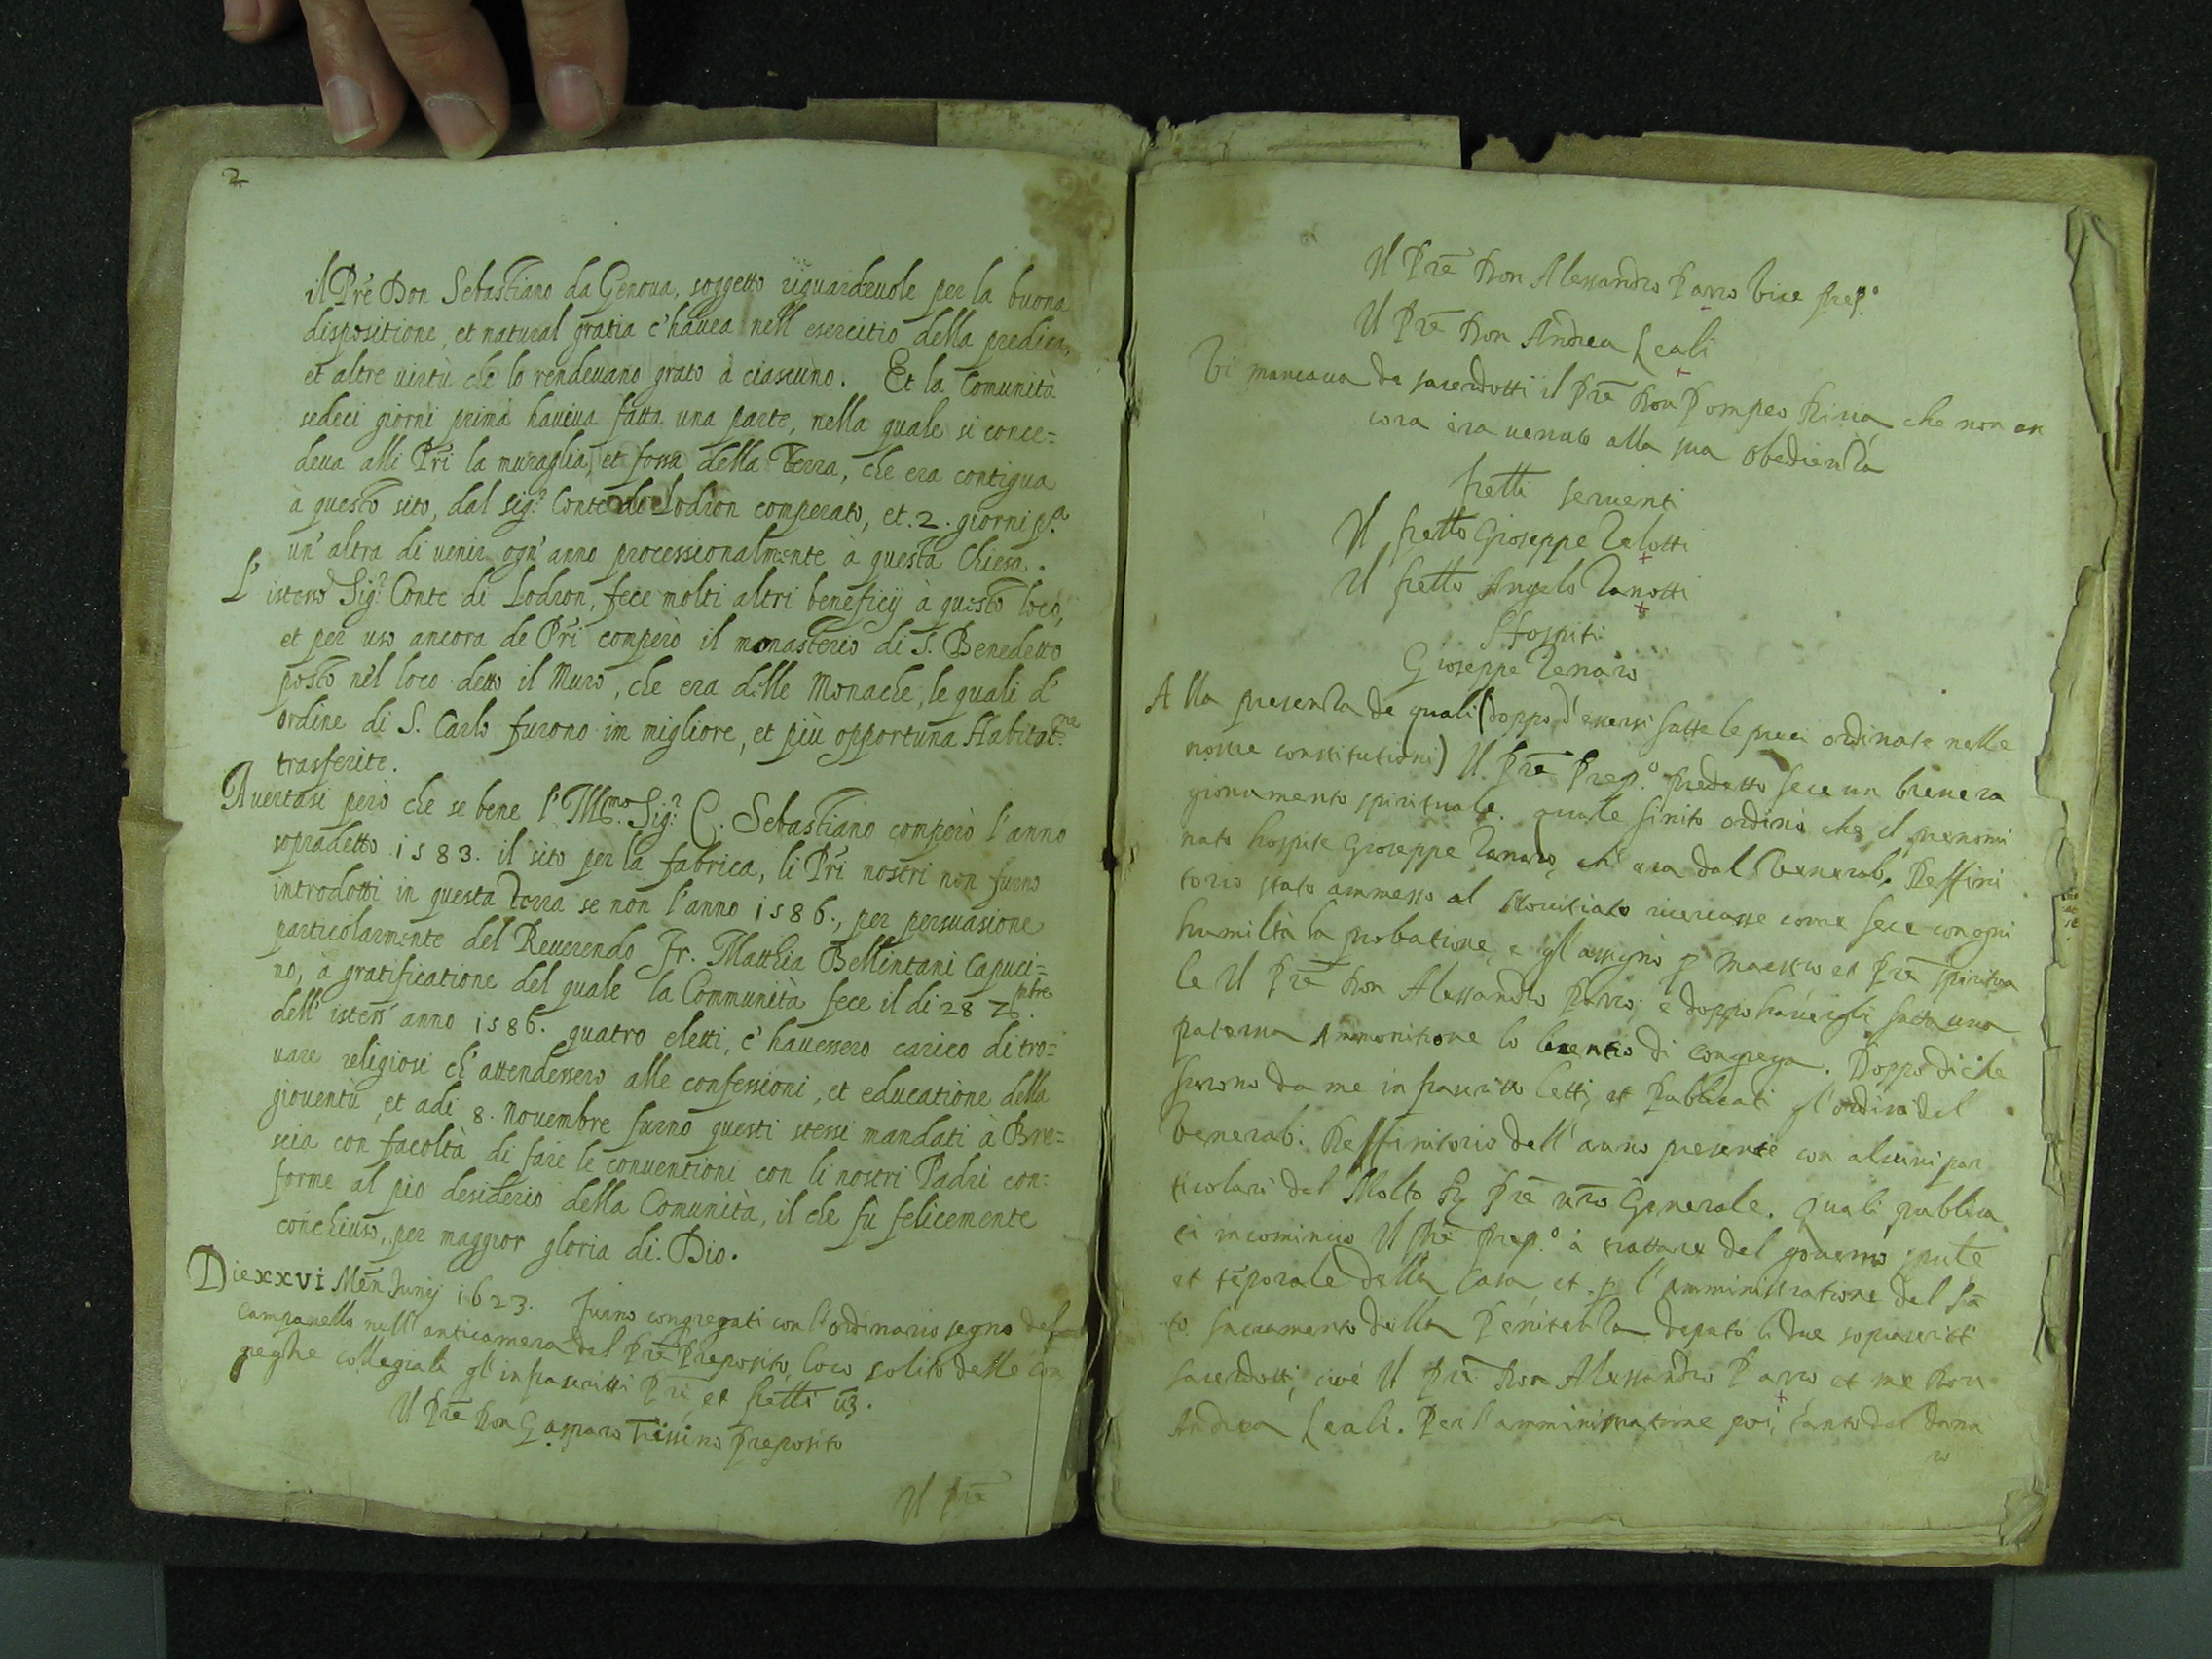 2
il Prē Don Sebastiano da Genoua, soggetto riguardeuole per la buona
dispositione, et natural gratia c'hauea nell esercitio della predica,
et altre uirtù che lo rendeuano grato à ciascuno. Et la Comunità
sedeci giorni prima haueua fatta una parte, nella quale si conce=
deua alli Pri la muraglia, et fossa della Terra, che era contigua
à questo sito, dal Sigr Conte di Lodron comperato, et .2. giorni pa
un' altra di uenir ogn' anno processionalmente à questa Chiesa.
L' istesso Sigr Conte di Lodron, fece molti altri beneficij à questo loco,
et per uso ancora de Pri comperò il monasterio di S. Benedetto
posto nel loco detto il Muro, che era delle Monache, le quali d'
ordine di S. Carlo furono im migliore, et più opportuna Habitatne
trasferite.
Auertasi però che se bene l' Illmo Sigr C. Sebastiano comperò l'anno
sopradetto 1583. il sito per la fabrica, li Pri nostri non furno
introdotti in questa terra se non l'anno 1586., per persuasione
particolarmente del Reuerendo Fr. Matthia Bellintani Capuci=
no, à gratificatione del quale la Communità fece il di 28 7mbre
dell' istess' anno 1586. quatro eletti, c' hauessero carico di tro=
uare religiosi ch' attendessero alle confessioni, et educatione della
giouentù, et adi 8. Nouembre furno questi stessi mandati à Bre=
scia con facoltà di fare le conuentioni con li nostri Padri con=
forme al pio desiderio della Comunità, il che fù felicemente
conchiuso, per maggior gloria di Dio.
Die xxvi Men Junij 1623. furno congregati con l'ordinario segno del
campanello nell' anticamera del Prē Preposito, loco solito delle con
greghe collegiali gl' infrascritti Pri et fretti uз.
Il Prē Don Gasparo Trissino Preposito
Il Prē
Il Prē Don Alessandro Parro Vice prepo
Il Prē Don Andrea Leali
Vi mancaua de sacerdotti il Prē Don Pompeo Riua, che non an
cora era uenuto alla sua obedienza
fretti seruenti
Il fretto Gioseppe Zalotti
Il fretto Angelo Zanotti
Hospiti
Gioseppe Zanaro
Alla presenza de quali (doppo d' essersi fatte le preci ordinate nelle
nostre constitutioni) Il Prē Prepo predetto fece un breue ra
gionamento spirituale. quale finito ordinò che il prenomi
nato hospite Gioseppe Zanaro, ch' era dal Venerab. Deffini
torio stato ammesso al Nouitiato ricercasse come fece con ogni
humiltà la probatione, e gl' assignò p maestro et Prē spiritua
le Il Prē Don Alessandro Parro; e doppo hauergli fatta una
paterna Ammonitione lo licentiò di congrega. Doppo di che
furono da me infrascritto letti, et publicati gl' ordini del
Venerab. Deffinitorio dell' anno presente con alcuni par
ticolari del Molto R Prē nrō Generale. quali publica
ti incominciò Il Prē Prepo à trattare del gouerno spule
et tēporale della Casa et p l' amministratione del Sā
to sacramento della Penitenza deputò li due sopracritti
sacerdotti, cioè Il Prē Don Alessandro Parro et me Don
Andrea Leali. Per l' amministratione poi, tanto del dana
ro